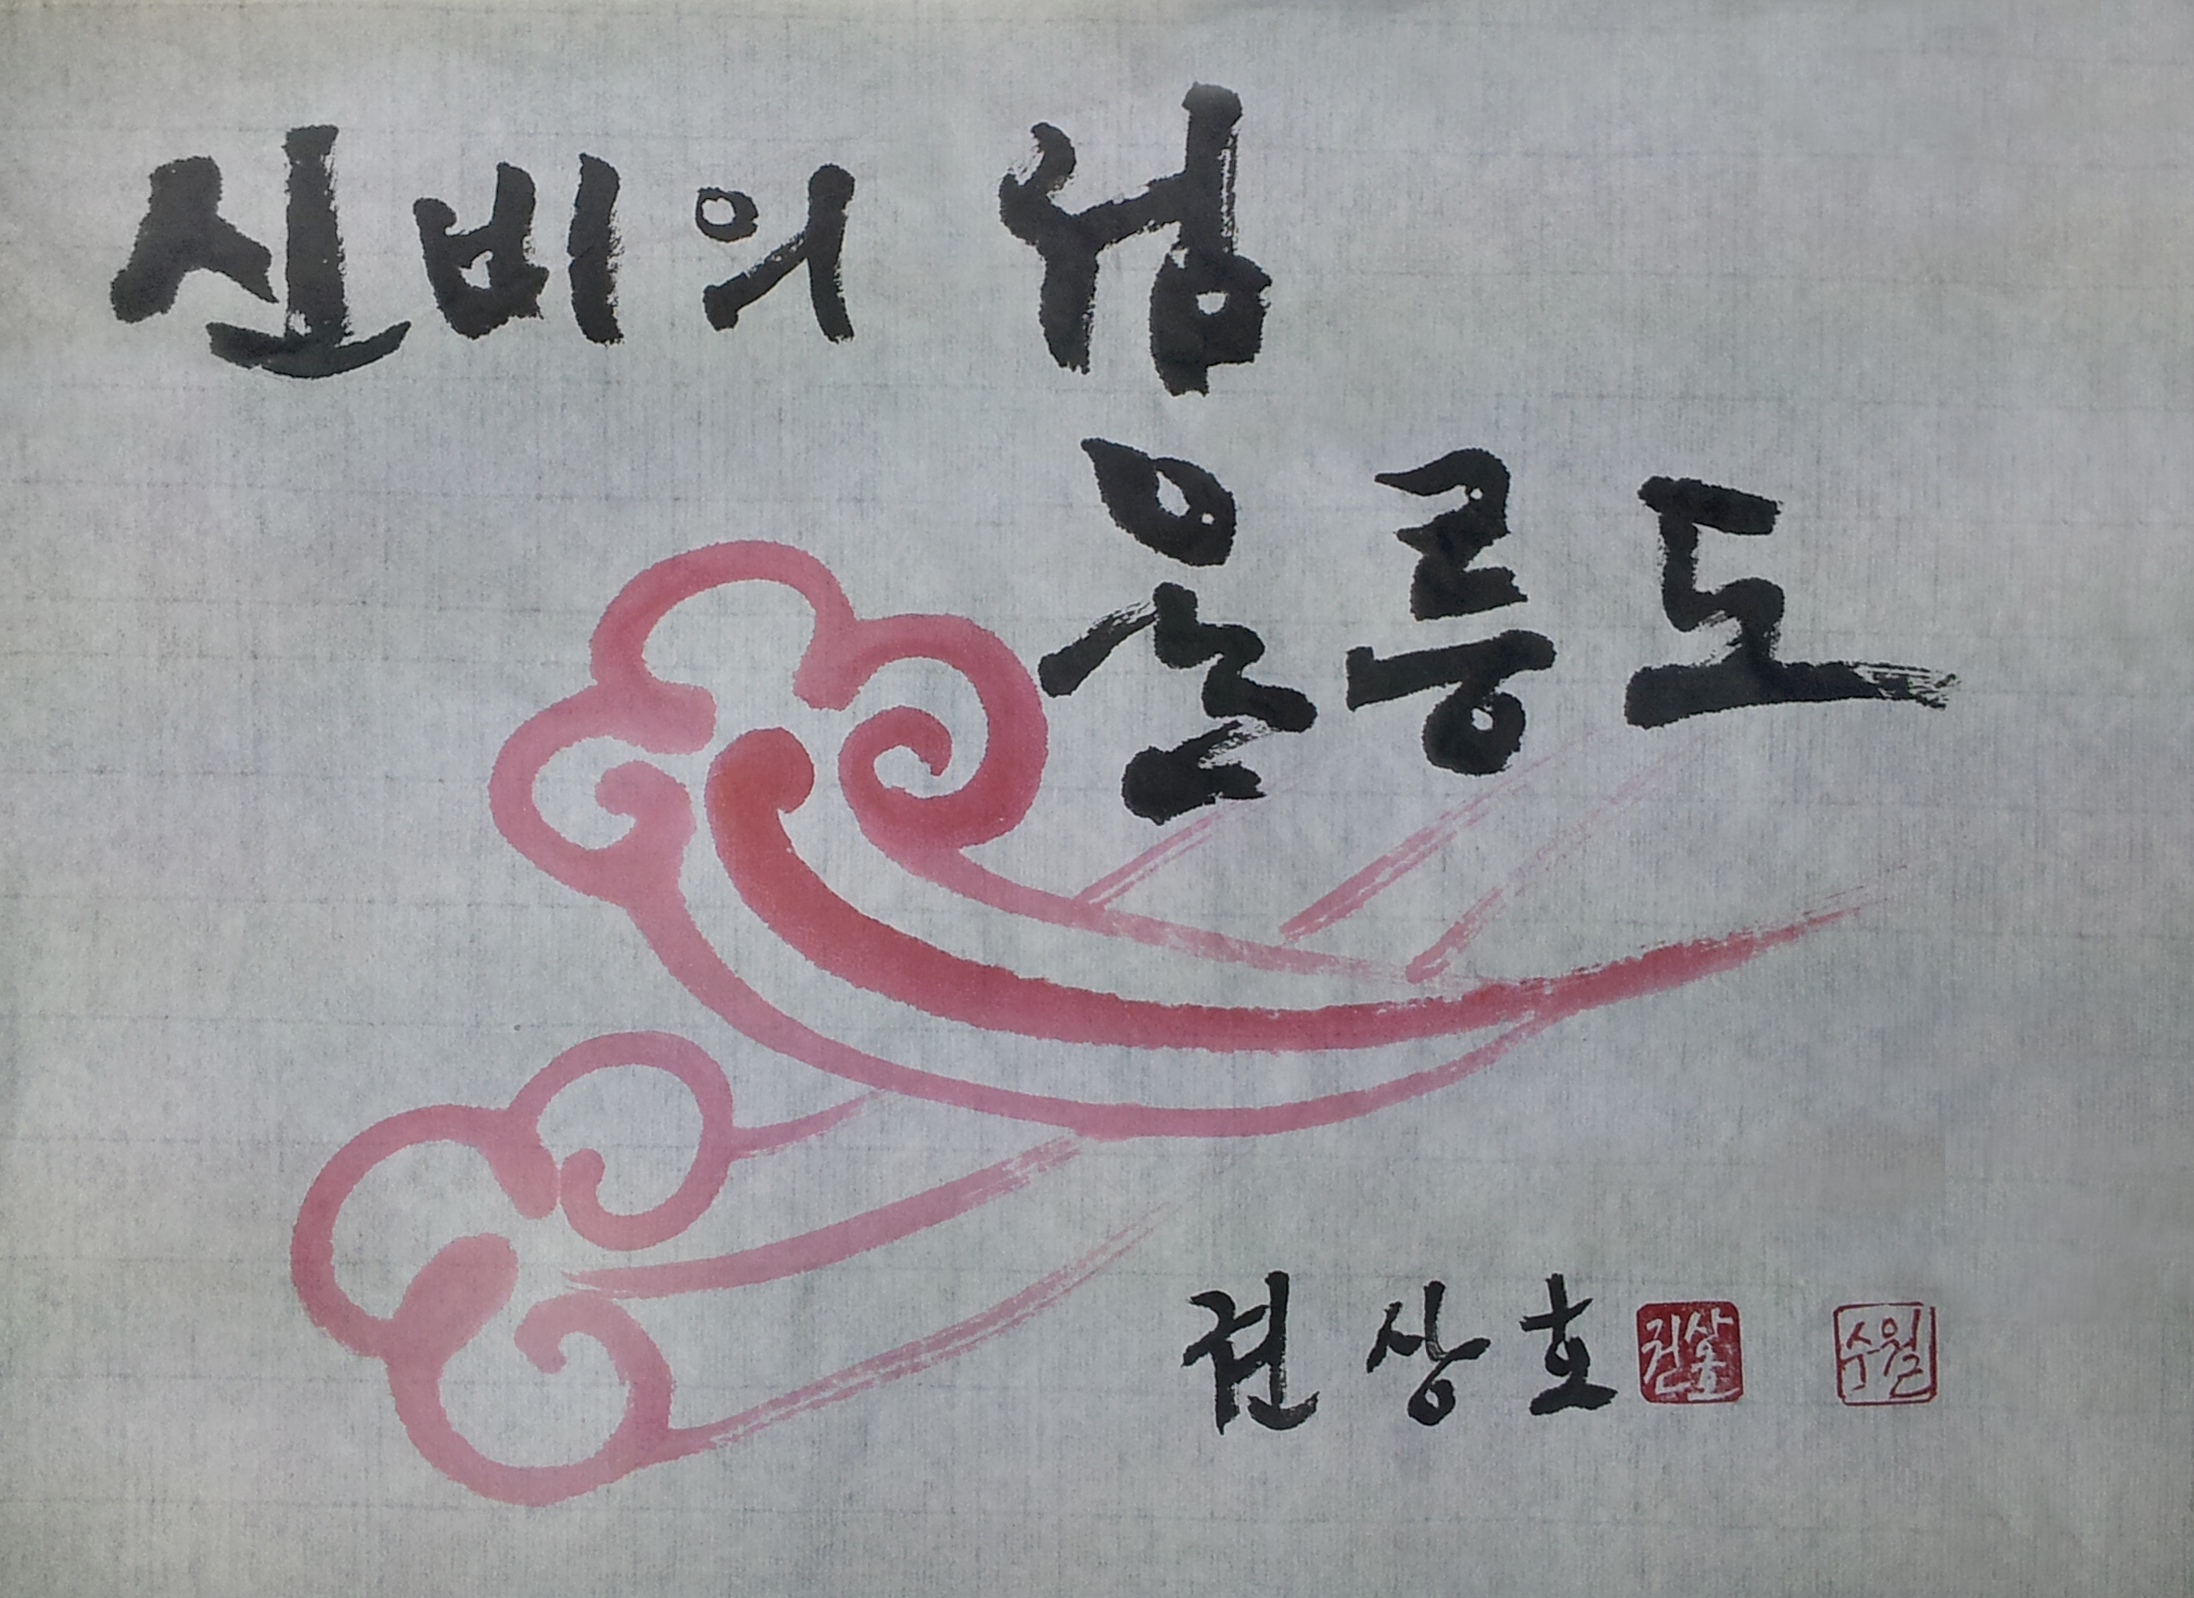 신비의 섬
울릉도
권상호 권상호 수월